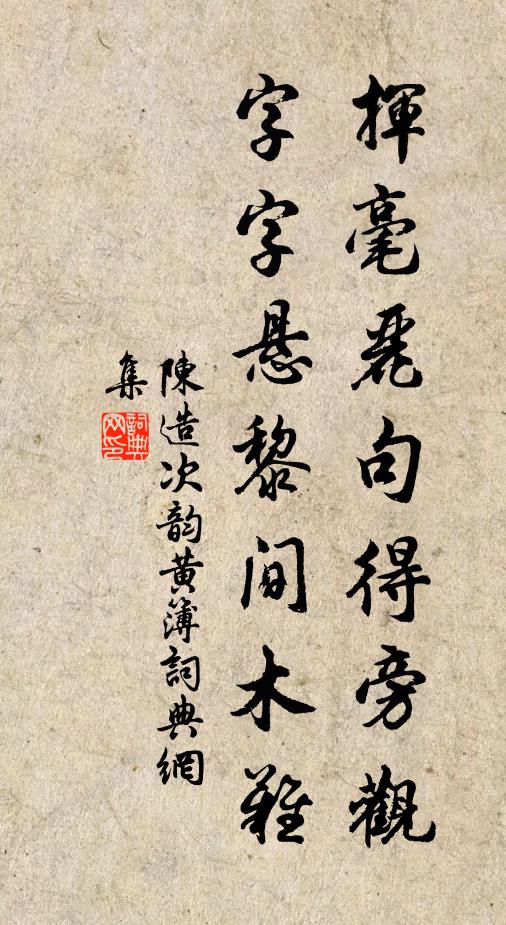 揮毫麗句得旁觀
字字懸黎間木難
陳造次韵黄簿詞典網
集
詞典網印